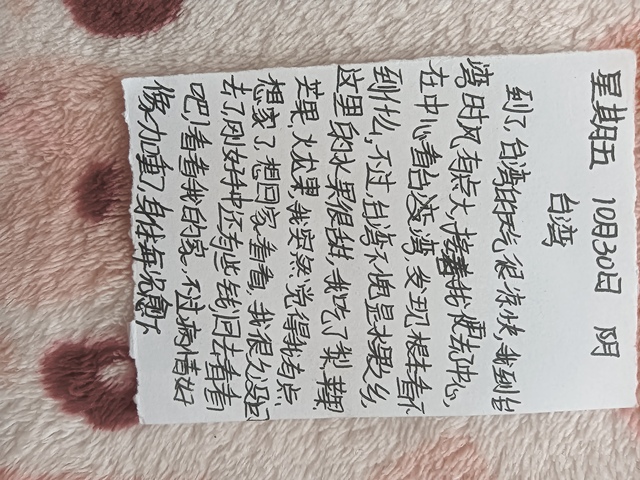 星期五 10月30日 阴
台湾
到了,台湾的天气很凉快,我到台
湾时风有点大,接着我便去中心,
在中心看台湾湾,发现根本看不
到什么,不过,台湾不愧是水果之乡,
这里的水果很甜,我吃了梨,苹果,
芒果,火龙果,我突然觉得我有点
想家了,想回家看看,我很久没回
去了,刚好手中还有些钱,回去看看
吧!看看我的家,不过病情好
像加重了,身体每况愈下